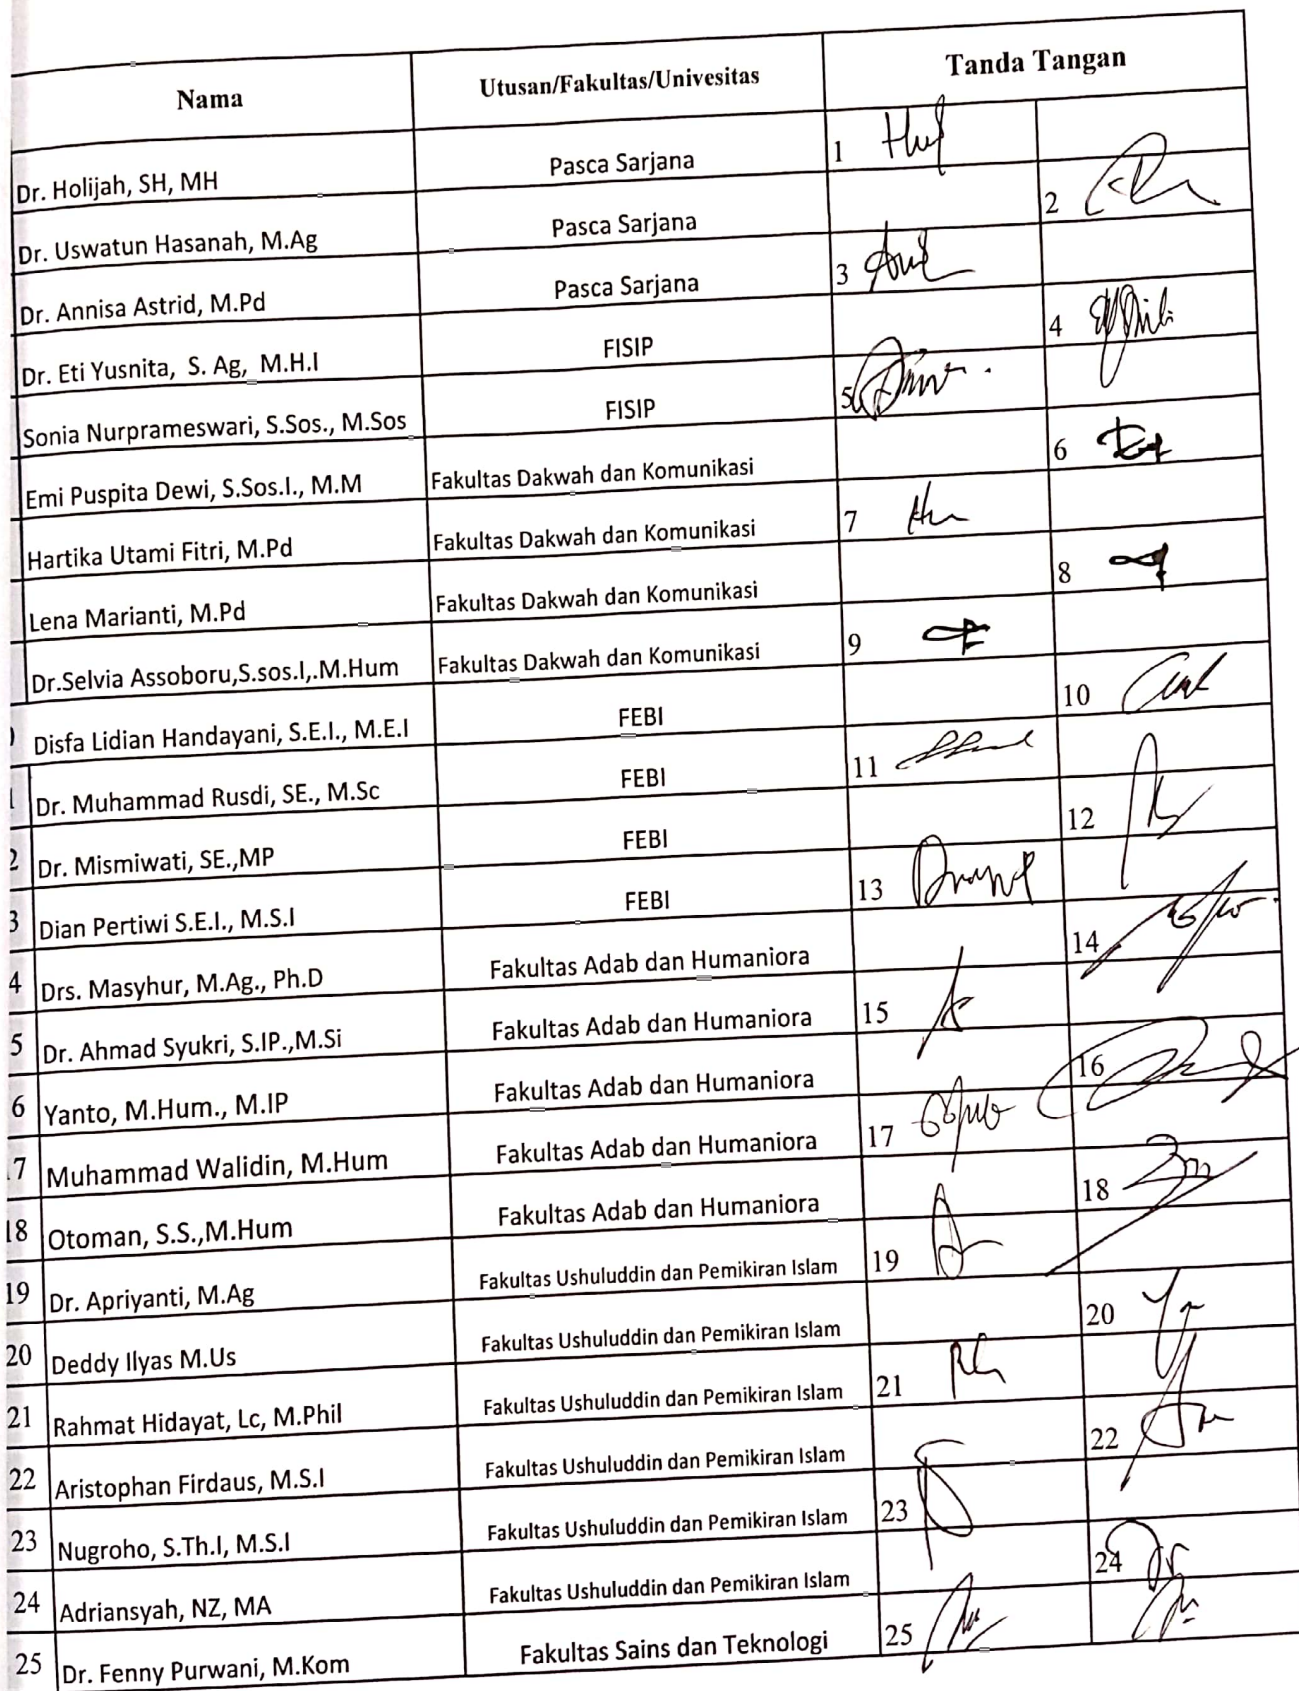 Nama Utusan/Fakultas/Univesitas Tanda Tangan
Dr. Holijah, SH, MH Pasca Sarjana 1
Dr. Uswatun Hasanah, M.Ag Pasca Sarjana 2
Dr. Annisa Astrid, M.Pd Pasca Sarjana 3
Dr. Eti Yusnita, S. Ag, M.H.I FISIP 4
Sonia Nurprameswari, S.Sos., M.Sos FISIP 5
Emi Puspita Dewi, S.Sos.I., M.M Fakultas Dakwah dan Komunikasi 6
Hartika Utami Fitri, M.Pd Fakultas Dakwah dan Komunikasi 7
Lena Marianti, M.Pd Fakultas Dakwah dan Komunikasi 8
Dr.Selvia Assoboru,S.sos.I,.M.Hum Fakultas Dakwah dan Komunikasi 9
Disfa Lidian Handayani, S.E.I., M.E.I FEBI 10
Dr. Muhammad Rusdi, SE., M.Sc FEBI 11
2 Dr. Mismiwati, SE.,MP FEBI 12
3 Dian Pertiwi S.E.I., M.S.I FEBI 13
4 Drs. Masyhur, M.Ag., Ph.D Fakultas Adab dan Humaniora 14
5 Dr. Ahmad Syukri, S.IP.,M.Si Fakultas Adab dan Humaniora 15
6 Yanto, M.Hum., M.IP Fakultas Adab dan Humaniora 16
7 Muhammad Walidin, M.Hum Fakultas Adab dan Humaniora 17
18 Otoman, S.S.,M.Hum Fakultas Adab dan Humaniora 18
19 Dr. Apriyanti, M.Ag Fakultas Ushuluddin dan Pemikiran Islam 19
20 Deddy Ilyas M.Us Fakultas Ushuluddin dan Pemikiran Islam 20
21 Rahmat Hidayat, Lc, M.Phil Fakultas Ushuluddin dan Pemikiran Islam 21
22 Aristophan Firdaus, M.S.I Fakultas Ushuluddin dan Pemikiran Islam 22
23 Nugroho, S.Th.I, M.S.I Fakultas Ushuluddin dan Pemikiran Islam 23
24 Adriansyah, NZ, MA Fakultas Ushuluddin dan Pemikiran Islam 24
25 Dr. Fenny Purwani, M.Kom Fakultas Sains dan Teknologi 25